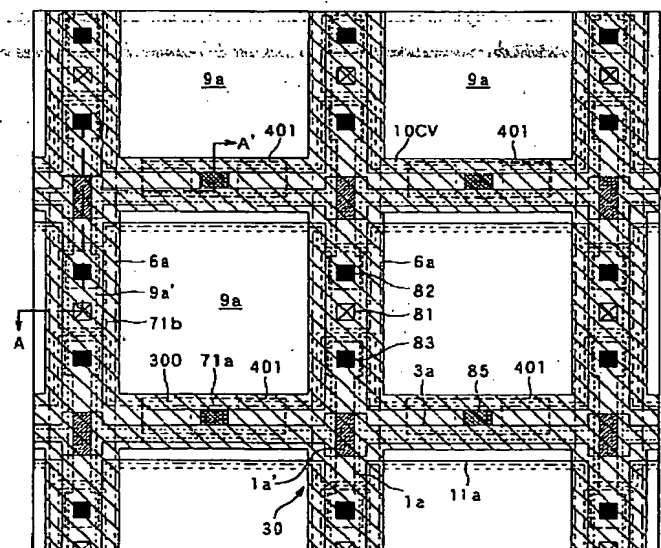 9a 9a
A' 401 10CV 401
6a 6a
9a' 82
9a 81
A 71b
83
300 71a 401 3a 85 401
1a' 1a 11a
30